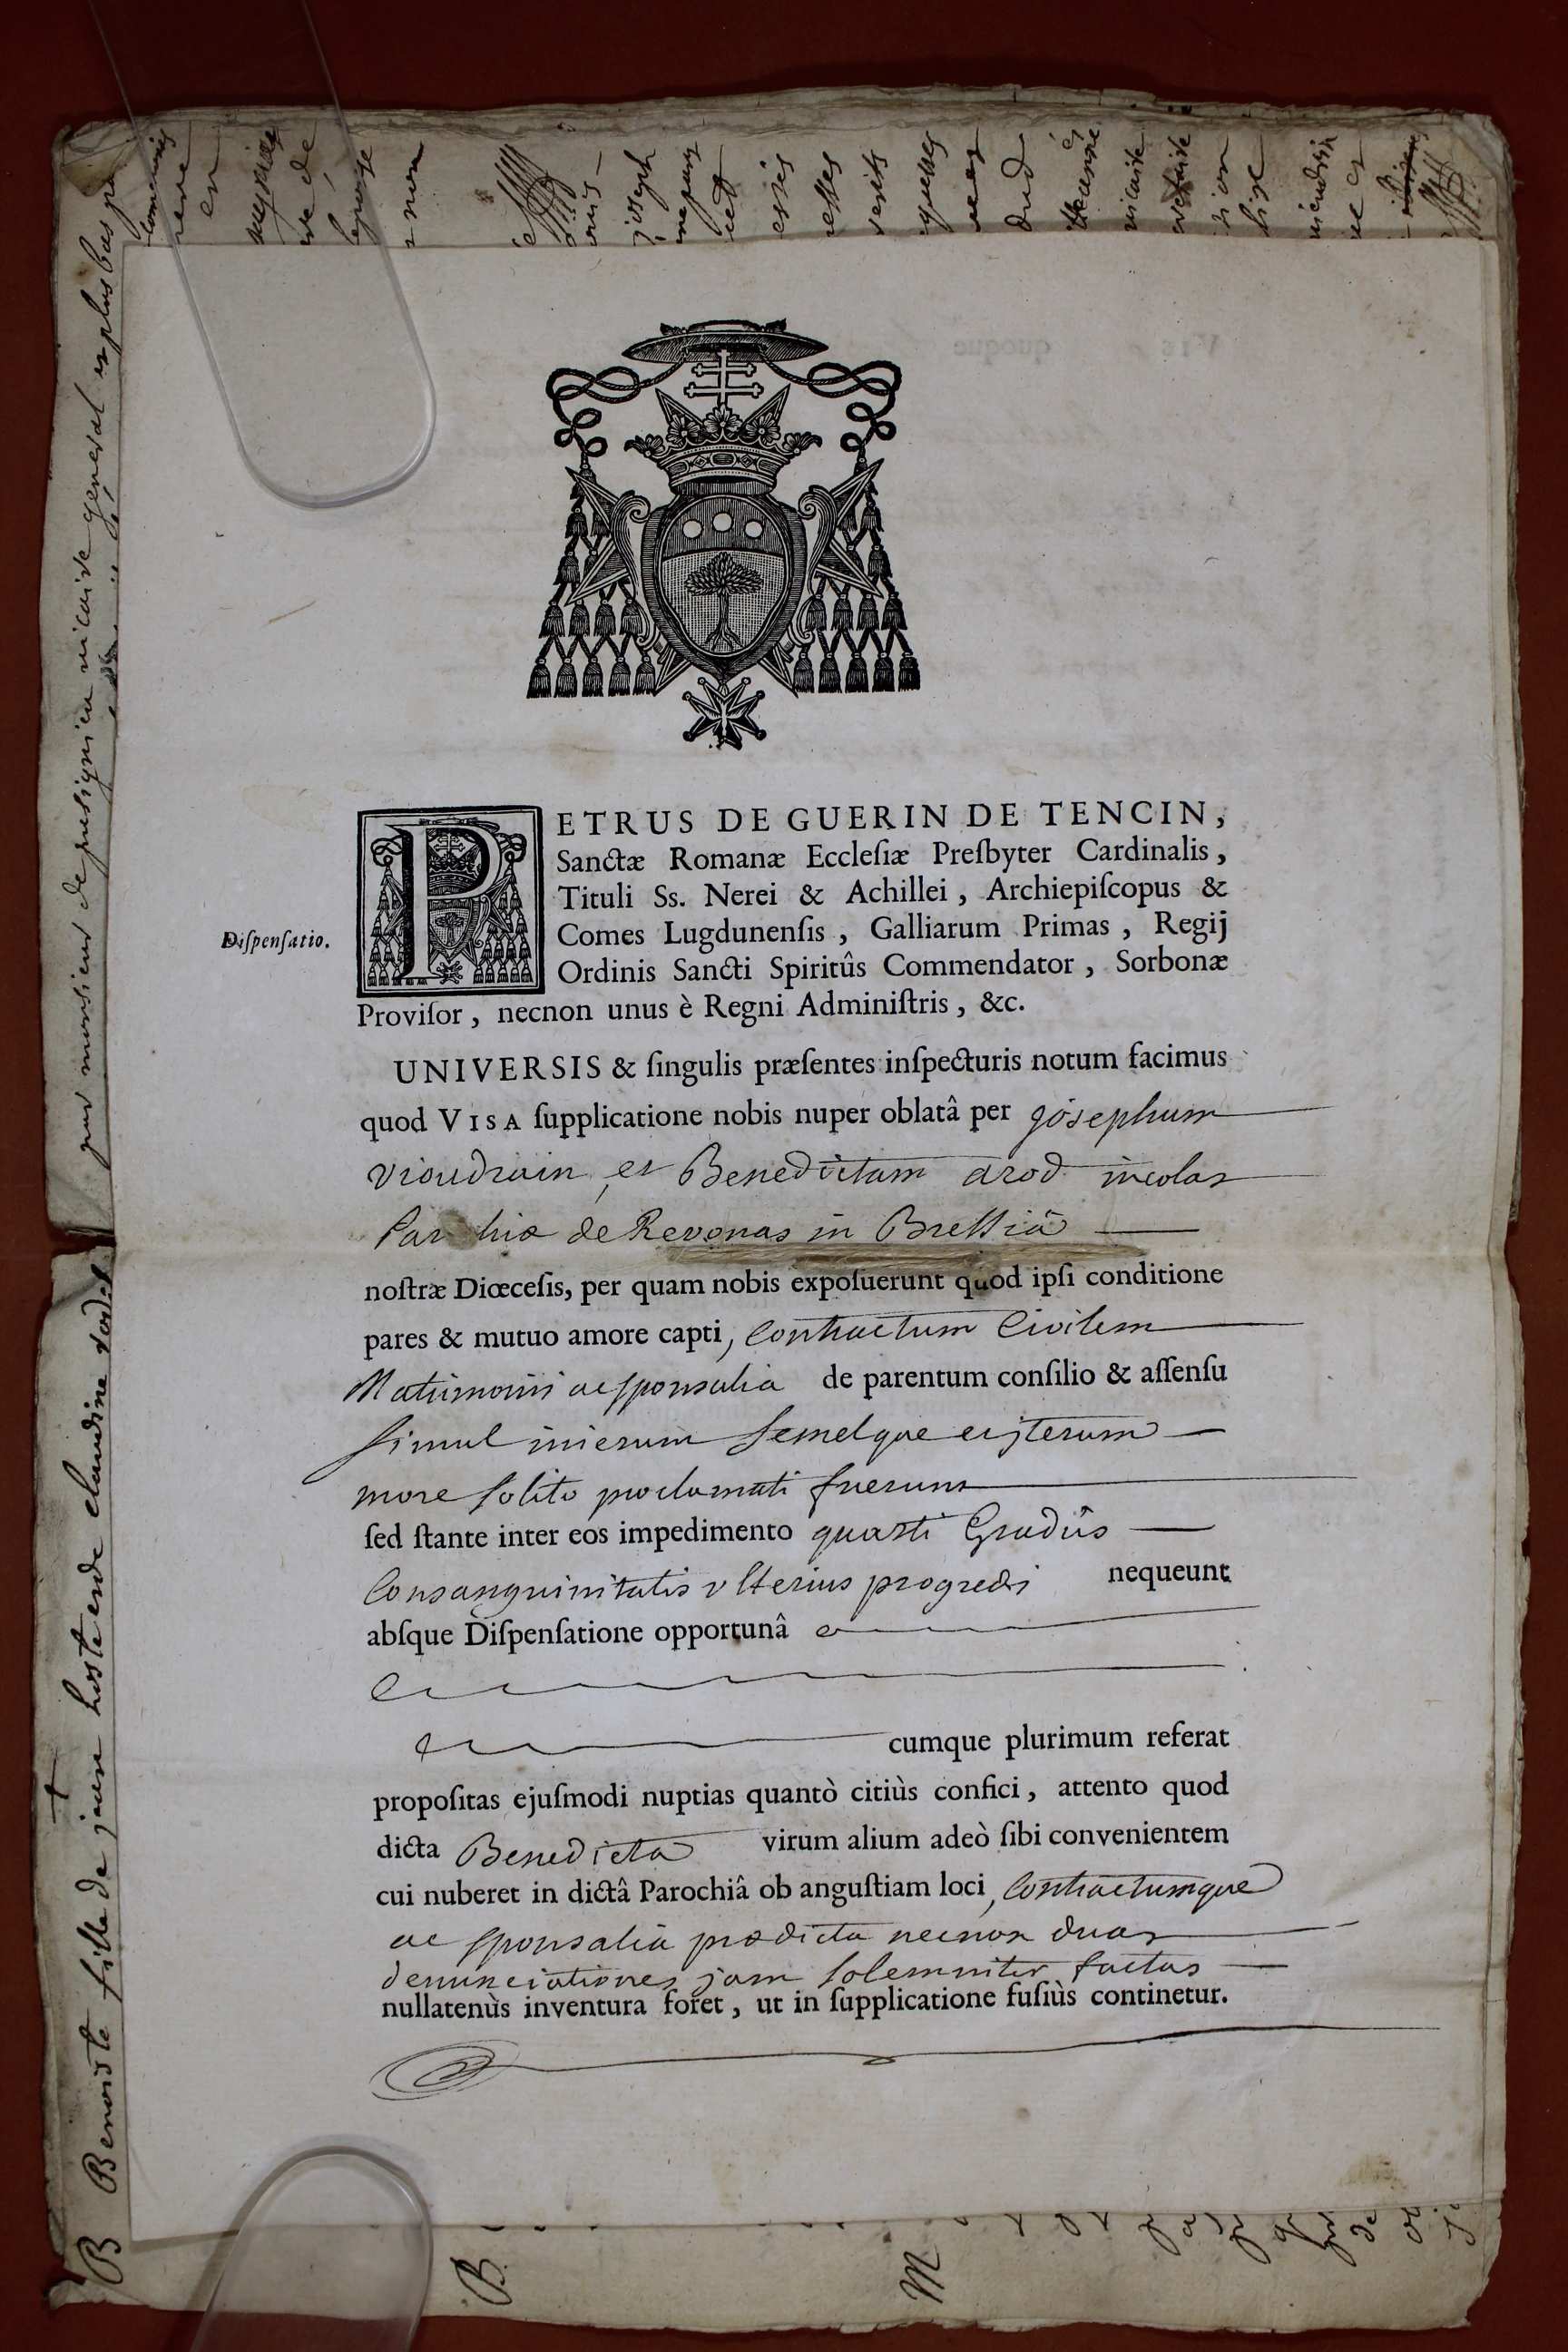 Dispensatio.
PETRUS DE GUERIN DE TENCIN,
Sanctæ Romanæ Eccleſiæ Preſbyter Cardinalis,
Tituli Ss. Nerei & Achillei, Archiepiſcopus &
Comes Lugdunenſis, Galliarum Primas, Regij
Ordinis Sancti Spiritûs Commendator, Sorbonæ
Proviſor, necnon unus è Regni Adminiſtris, &c.
UNIVERSIS & ſingulis præſentes inſpecturis notum facimus
quod VISA ſupplicatione nobis nuper oblatâ per josephum
vioudrain, et Benedictam arod incolas
de Revonas in Bressiâ
noſtræ Diœceſis, per quam nobis expoſuerunt quod ipſi conditione
pares & mutuo amore capti, Contractum Civilem
Matrimonii ac sponsalia de parentum conſilio & aſſenſu
simul inierunt semelque et iterum
more solito proclamati fuerunt
ſed ſtante inter eos impedimento quarti Gradûs
Consanguinitatis ulterius progredi nequeunt
abſque Diſpenſatione opportunâ
cumque plurimum referat
propoſitas ejuſmodi nuptias quantò citiùs confici, attento quod
dicta Benedicta virum alium adeò ſibi convenientem
cui nuberet in dictâ Parochiâ ob anguſtiam loci, Contractumque
ac sponsalia prædicta necnon duas
denunciationes jam solemniter factas
nullatenùs inventura foret, ut in ſupplicatione fuſiùs continetur.
par monsieur de vicaire general et plus bas
B Benoiste fille de jaene hoste et de claudine
joseph
B
M